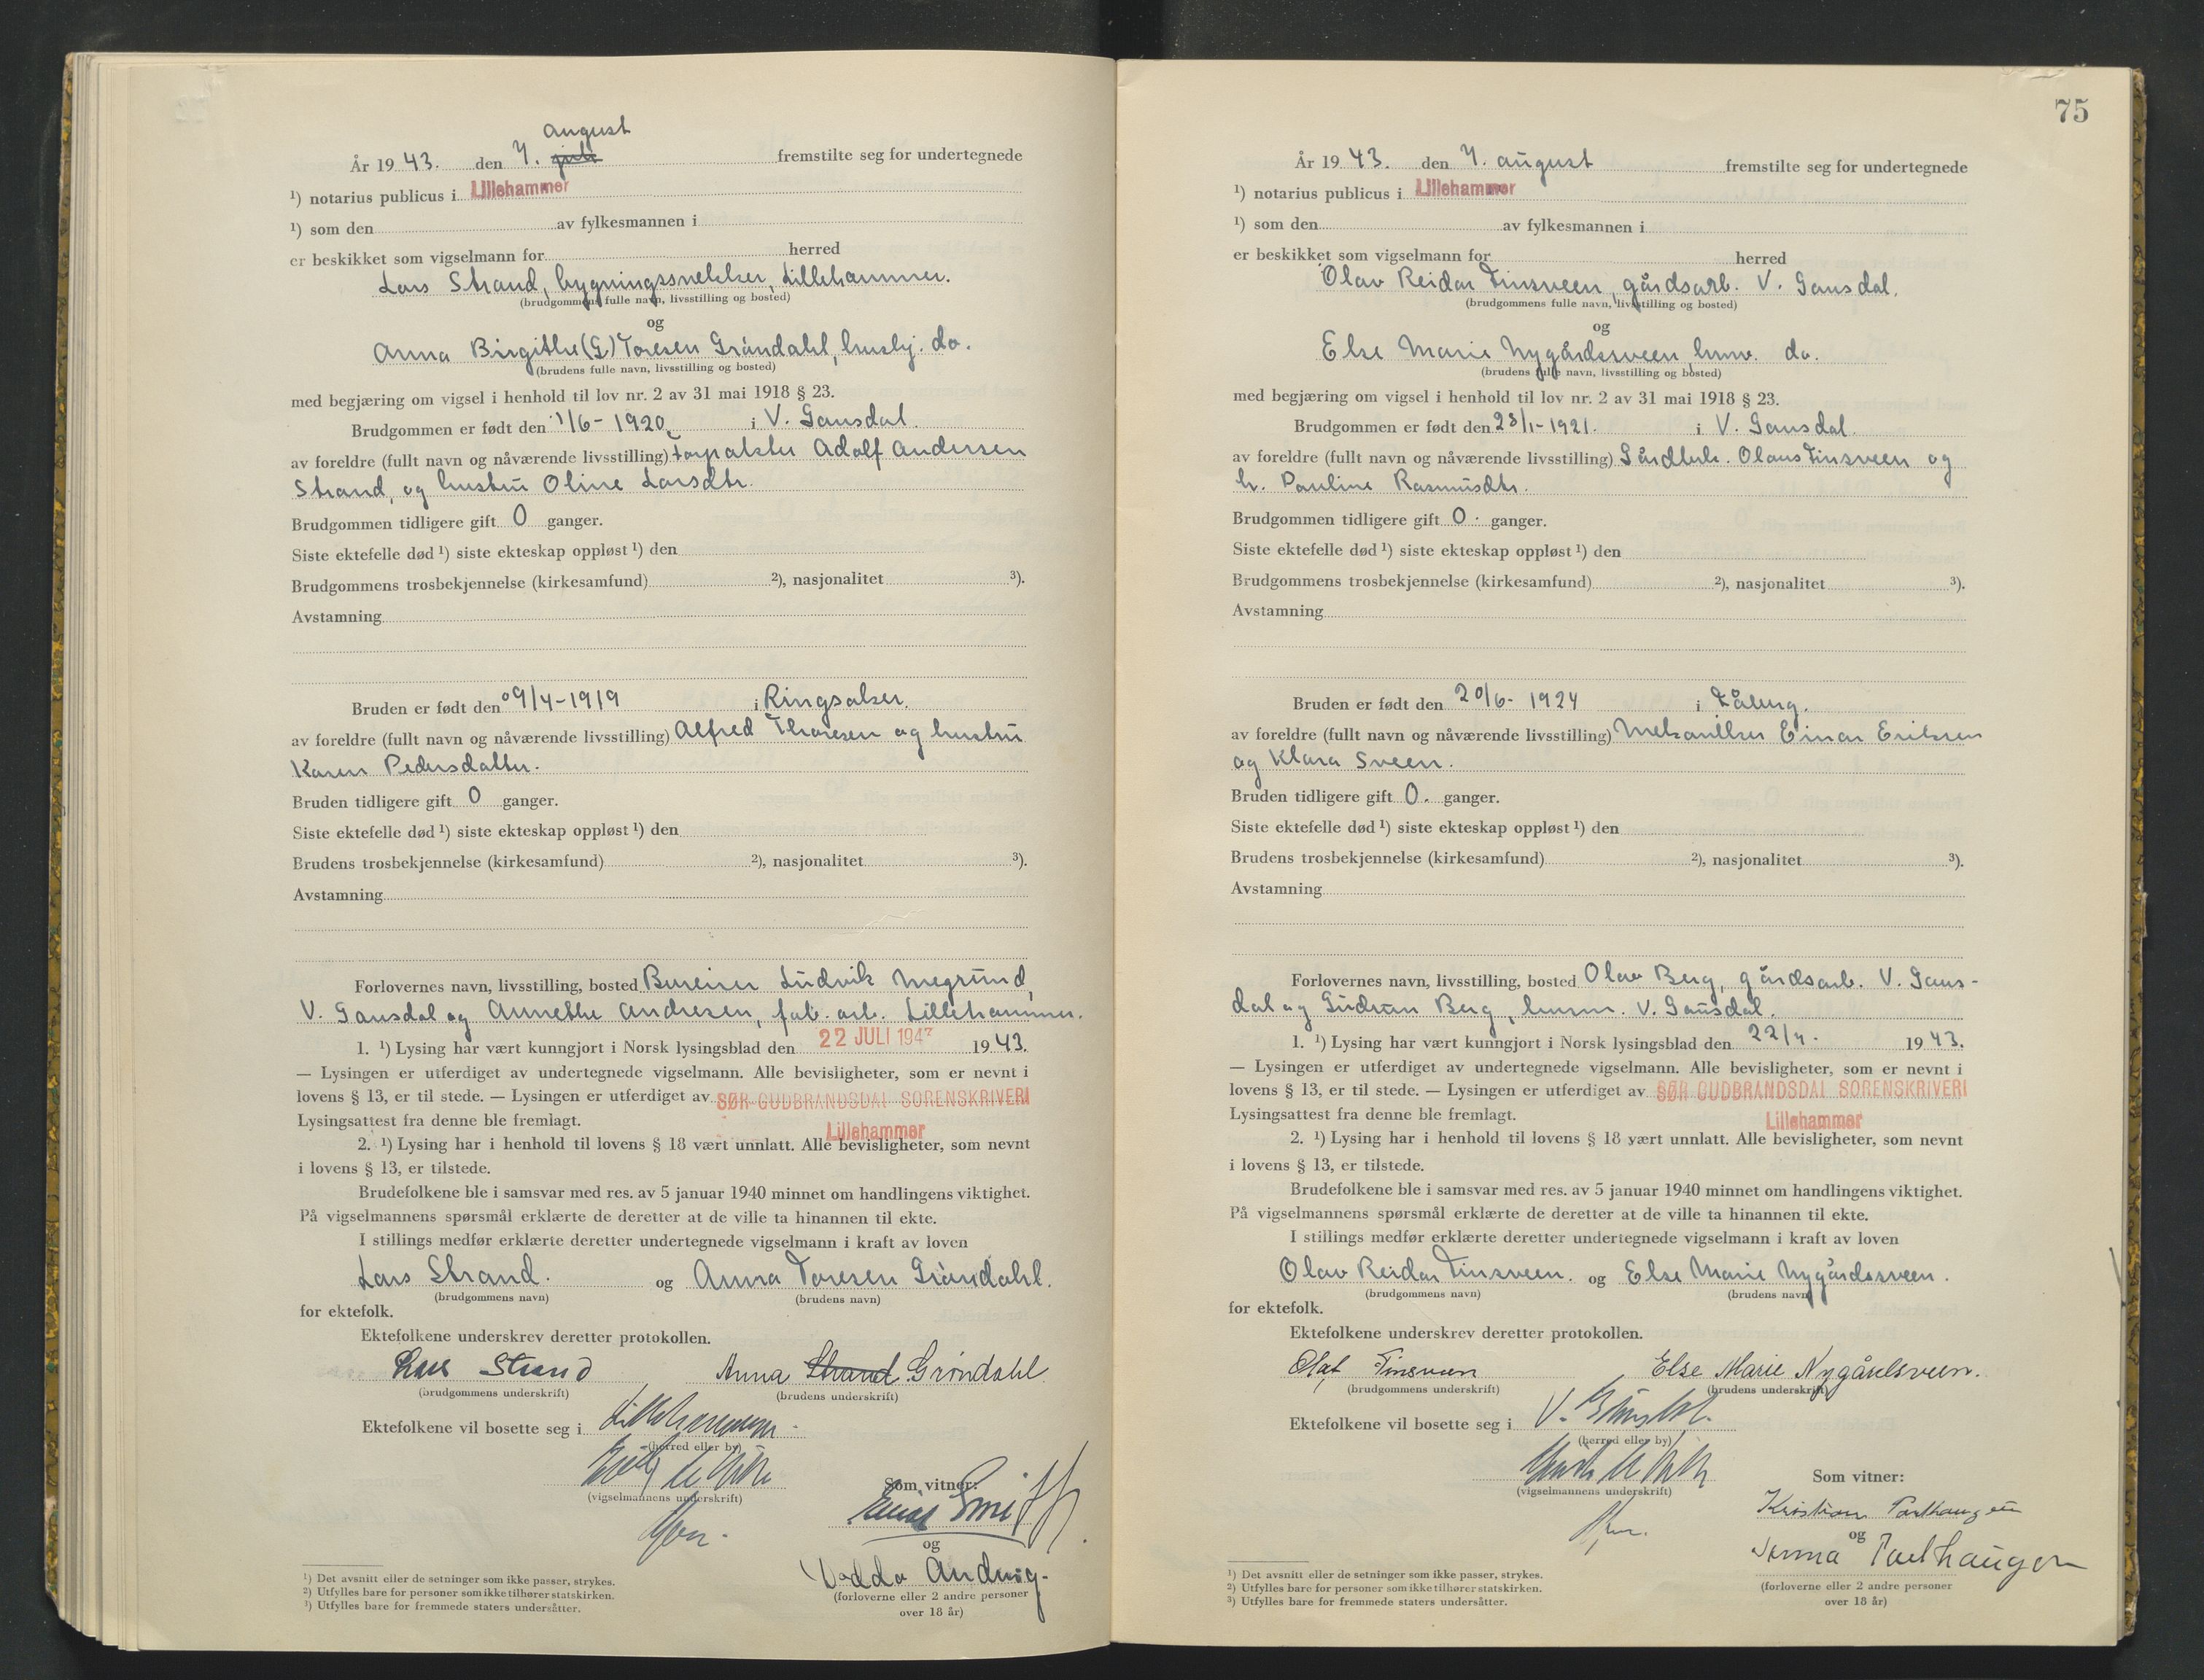 august
År 19 43. den 7. juli fremstilte seg for undertegnede
¹) notarius publicus i Lillehammer
¹) som den av fylkesmannen i
er beskikket som vigselmann for herred
Lars Strand, bygningssnekker, Lillehammer.
(brudgommens fulle navn, livsstilling og bosted)
og
Anna Birgithe (G) Toresen Gröndahl, hushj. do.
(brudens fulle navn, livsstilling og bosted)
med begjæring om vigsel i henhold til lov nr. 2 av 31 mai 1918 § 23.
Brudgommen er født den 1/6-1920 i V. Gausdal
av foreldre (fullt navn og nåværende livsstilling) Forpakter Adolf Andersen
Strand, og hustru Oline Larsdtr.
Brudgommen tidligere gift 0 ganger.
Siste ektefelle død ¹) siste ekteskap oppløst ¹) den
Brudgommens trosbekjennelse (kirkesamfund) ²), nasjonalitet ³).
Avstamning
Bruden er født den 9/4-1919 i Ringsaker.
av foreldre (fullt navn og nåværende livsstilling) Alfred Thoresen og hustru
Karen Pedersdatter.
Bruden tidligere gift 0 ganger.
Siste ektefelle død ¹) siste ekteskap oppløst ¹) den
Brudens trosbekjennelse (kirkesamfund) ²), nasjonalitet ³).
Avstamning
Forlovernes navn, livsstilling, bosted Bureiser Ludvik Megrund,
V. Gausdal og Annethe Andresen, fab. arb. Lillehammer.
1. ¹) Lysing har vært kunngjort i Norsk lysingsblad den 22 JULI 194 19 43.
— Lysingen er utferdiget av undertegnede vigselmann. Alle bevisligheter, som er nevnt i
lovens § 13, er til stede. — Lysingen er utferdiget av SØR-GUDBRANDSDAL SORENSKRIVERI
Lysingsattest fra denne ble fremlagt.
Lillehammer
2. ¹) Lysing har i henhold til lovens § 18 vært unnlatt. Alle bevisligheter, som nevnt
i lovens § 13, er tilstede.
Brudefolkene ble i samsvar med res. av 5 januar 1940 minnet om handlingens viktighet.
På vigselmannens spørsmål erklærte de deretter at de ville ta hinannen til ekte.
I stillings medfør erklærte deretter undertegnede vigselmann i kraft av loven
Lars Strand. og Anna Toresen Gröndahl.
(brudgommens navn) (brudens navn)
for ektefolk.
Ektefolkene underskrev deretter protokollen.
Lars Strand Anna Strand Grøndahl
(brudgommens underskrift) (brudens underskrift)
Ektefolkene vil bosette seg i Lillehammer
(herred eller by)
(vigselmannens underskrift)
Som vitner:
Einar
og
Andvig.
(forloverne eller 2 andre personer
over 18 år)
¹) Det avsnitt eller de setninger som ikke passer, strykes.
²) Utfylles bare for personer som ikke tilhører statskirken.
³) Utfylles bare for fremmede staters undersåtter.
75
År 19 43. den 7. august fremstilte seg for undertegnede
¹) notarius publicus i Lillehammer
¹) som den av fylkesmannen i
er beskikket som vigselmann for herred
Olav Reidar Tinsveen, gårdsarb. V. Gausdal.
(brudgommens fulle navn, livsstilling og bosted)
og
Else Marie Nygårdsveen, husm. do.
(brudens fulle navn, livsstilling og bosted)
med begjæring om vigsel i henhold til lov nr. 2 av 31 mai 1918 § 23.
Brudgommen er født den 23/1-1921. i V. Gausdal.
av foreldre (fullt navn og nåværende livsstilling) Gårdbr. Olaus Tinsveen og
h. Pauline Rasmusdtr.
Brudgommen tidligere gift 0. ganger.
Siste ektefelle død ¹) siste ekteskap oppløst ¹) den
Brudgommens trosbekjennelse (kirkesamfund) ²), nasjonalitet ³).
Avstamning
Bruden er født den 20/6-1924 i Fåberg.
av foreldre (fullt navn og nåværende livsstilling) Mekaniker Einar Eriksen
og Klara Sveen.
Bruden tidligere gift 0. ganger.
Siste ektefelle død ¹) siste ekteskap oppløst ¹) den
Brudens trosbekjennelse (kirkesamfund) ²), nasjonalitet ³).
Avstamning
Forlovernes navn, livsstilling, bosted Olav Berg, gårdsarb. V. Gaus-
dal og Gudrun Berg, husm. V. Gausdal.
1. ¹) Lysing har vært kunngjort i Norsk lysingsblad den 22/7. 19 43.
— Lysingen er utferdiget av undertegnede vigselmann. Alle bevisligheter, som er nevnt i
lovens § 13, er til stede. — Lysingen er utferdiget av SØR GUDBRANDSDAL SORENSKRIVERI
Lysingsattest fra denne ble fremlagt.
Lillehammer
2. ¹) Lysing har i henhold til lovens § 18 vært unnlatt. Alle bevisligheter, som nevnt
i lovens § 13, er tilstede.
Brudefolkene ble i samsvar med res. av 5 januar 1940 minnet om handlingens viktighet.
På vigselmannens spørsmål erklærte de deretter at de ville ta hinannen til ekte.
I stillings medfør erklærte deretter undertegnede vigselmann i kraft av loven
Olav Reidar Tinsveen. og Else Marie Nygårdssveen.
(brudgommens navn) (brudens navn)
for ektefolk.
Ektefolkene underskrev deretter protokollen.
Olaf Tinsveen Else Marie Nygårdsveen.
(brudgommens underskrift) (brudens underskrift)
Ektefolkene vil bosette seg i V. Gausdal.
(herred eller by)
(vigselmannens underskrift)
Som vitner:
Kristian Torthaugen
og
Torthaugen
(forloverne eller 2 andre personer
over 18 år)
¹) Det avsnitt eller de setninger som ikke passer, strykes.
²) Utfylles bare for personer som ikke tilhører statskirken.
³) Utfylles bare for fremmede staters undersåtter.